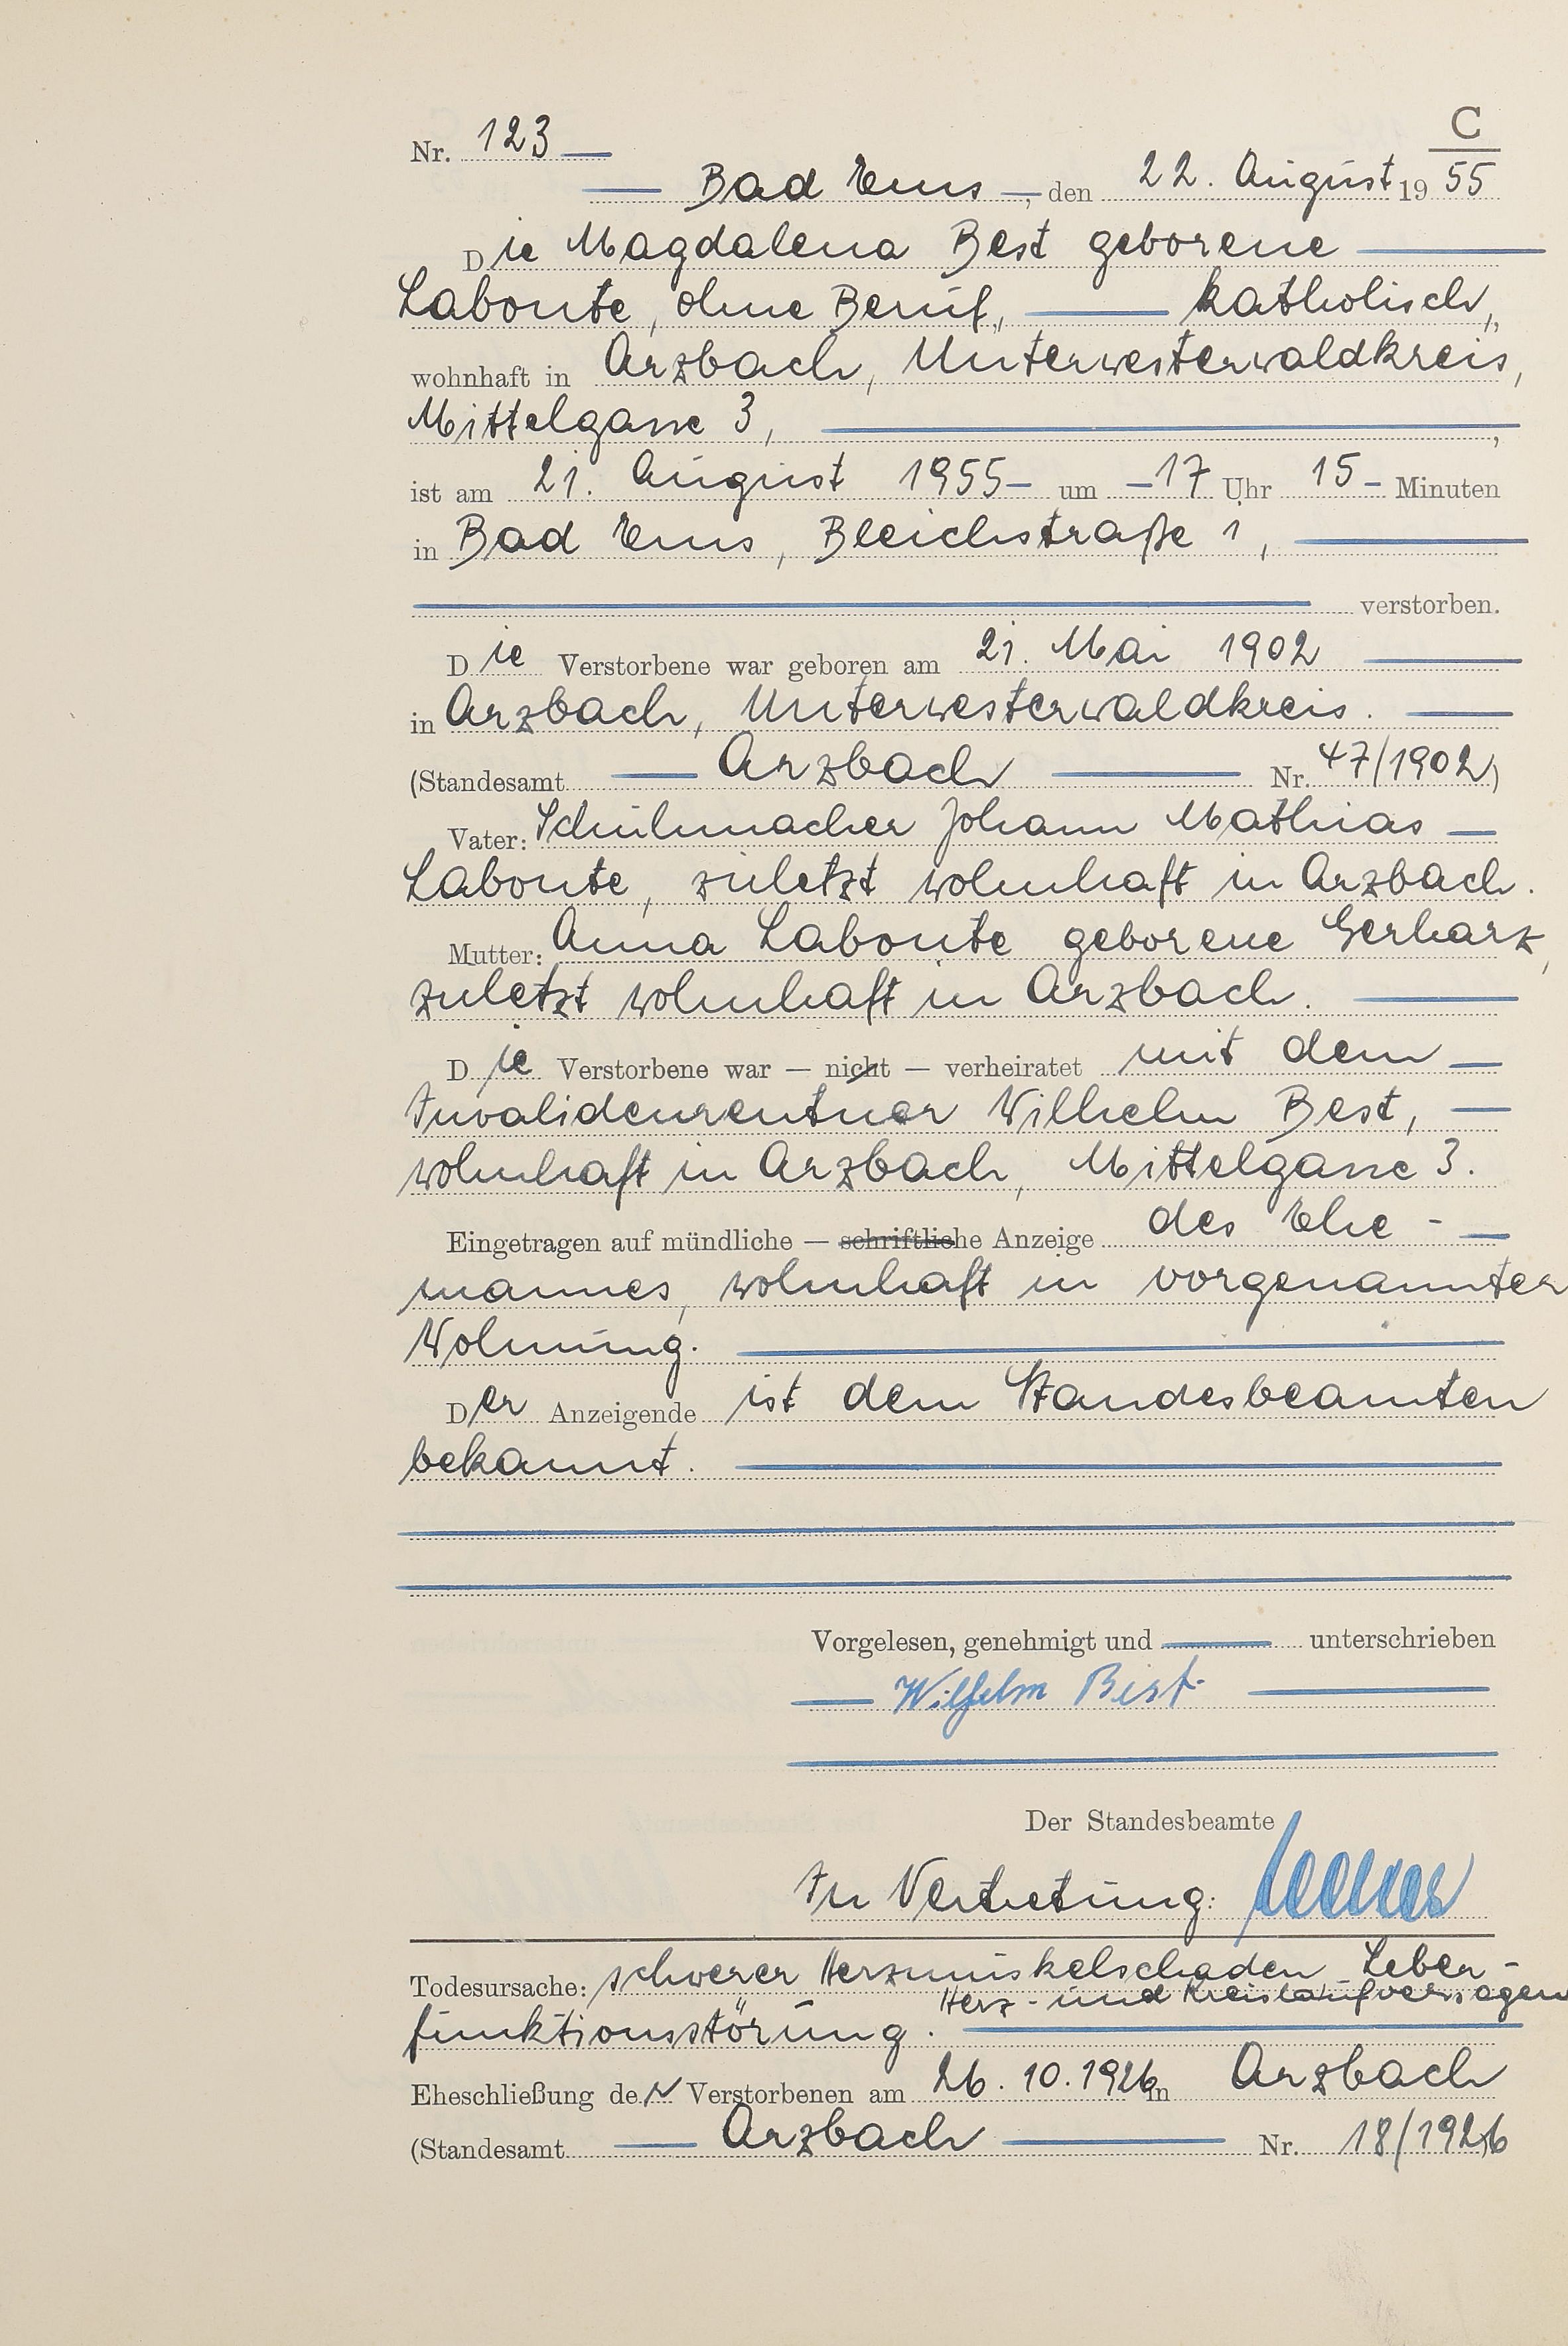 C
Nr. 123
Bad Ems, den 22. August 1955
Die Magdalena Best geborene
Labonte, ohne Beruf, katholisch,
wohnhaft in Arzbach, Unterwesterwaldkreis,
Mittelgasse 3,
ist am 21. August 1955 um 17 Uhr 15 Minuten
in Bad Ems, Bleichstraße 1,
verstorben.
Die Verstorbene war geboren am 21. Mai 1902
in Arzbach, Unterwesterwaldkreis.
(Standesamt Arzbach Nr. 47/1902)
Vater: Schuhmacher Johann Mathias
Labonte, zuletzt wohnhaft in Arzbach.
Mutter: Anna Labonte geborene Gerharz,
zuletzt wohnhaft in Arzbach.
Die Verstorbene war — nicht — verheiratet mit dem
Invalidenrentner Wilhelm Best,
wohnhaft in Arzbach, Mittelgasse 3.
Eingetragen auf mündliche — schriftliche Anzeige des Ehe-
mannes, wohnhaft in vorgenannter
Wohnung.
Der Anzeigende ist dem Standesbeamten
bekannt.
Vorgelesen, genehmigt und unterschrieben
Wilhelm Best
Der Standesbeamte
In Vertretung:
Todesursache: schwerer Herzmuskelschaden Leber-
Herz- und Kreislaufversagen
funktionsstörung.
Eheschließung der Verstorbenen am 26.10.1926 in Arzbach
(Standesamt Arzbach Nr. 18/1926